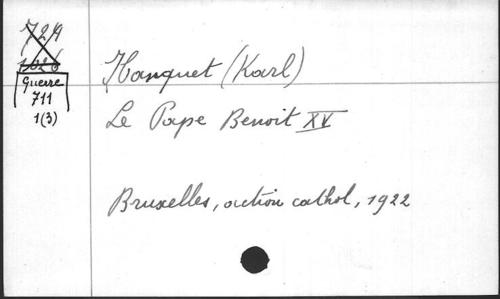 724
1026
Guerre
711
1(3)
Hanquet (Karl)
Le Pape Benoit XV
Bruxelles, action cathol, 1922